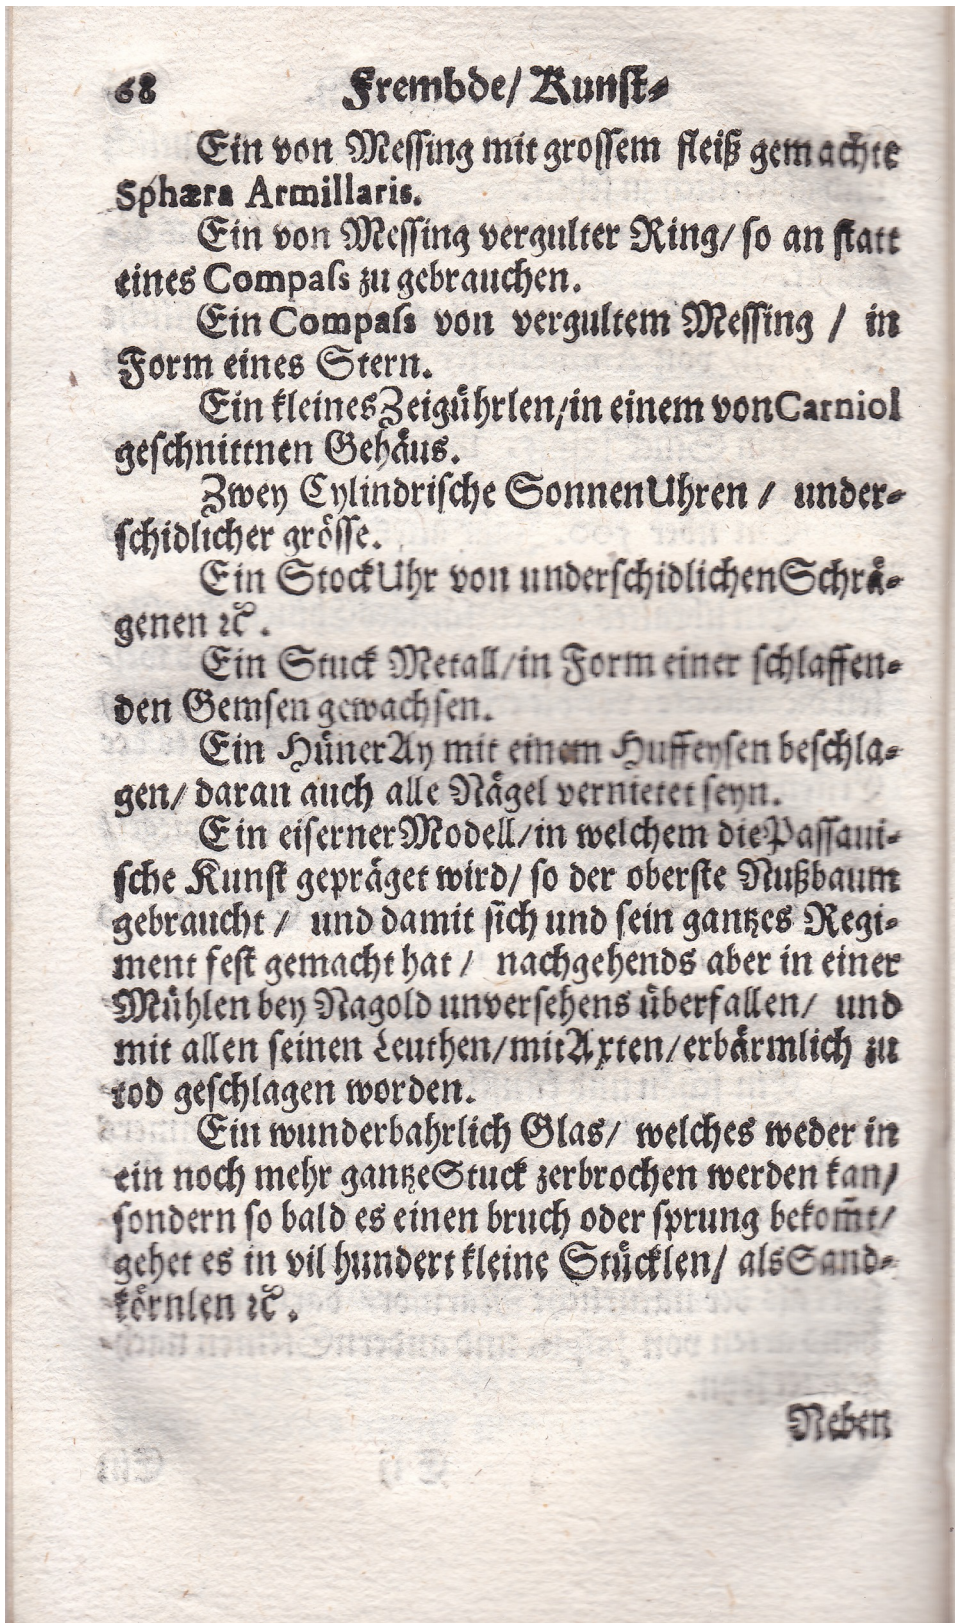 68 Frembde/ Kunst⸗
Ein von Messing mit grossem fleiß gemachte
Sphæra Armillaris.
Ein von Messing vergulter Ring/ so an statt
eines Compaſs zu gebrauchen.
Ein Compaſs von vergultem Messing / in
Form eines Stern.
Ein kleines Zeigührlen/in einem von Carniol
geschnittnen Gehäus.
Zwey Cylindrische SonnenUhren / under⸗
schidlicher grösse.
Ein StockUhr von underschidlichen Schrä⸗
genen ꝛc.
Ein Stuck Metall/in Form einer schlaffen⸗
den Gemsen gewachsen.
Ein HünerAy mit einem Huffeysen beschla⸗
gen/ daran auch alle Nägel vernietet seyn.
Ein eiserner Modell/in welchem die Passaui⸗
sche Kunst gepräget wird/ so der oberste Nußbaum
gebraucht / und damit sich und sein gantzes Regi⸗
ment fest gemacht hat / nachgehends aber in einer
Mühlen bey Nagold unversehens überfallen/ und
mit allen seinen Leuthen/mit Axten/erbärmlich zu
tod geschlagen worden.
Ein wunderbahrlich Glas/ welches weder in
ein noch mehr gantze Stuck zerbrochen werden kan/
sondern so bald es einen bruch oder sprung bekom̃t/
gehet es in vil hundert kleine Stücklen/ als Sand⸗
körnlen ꝛc.
Neben